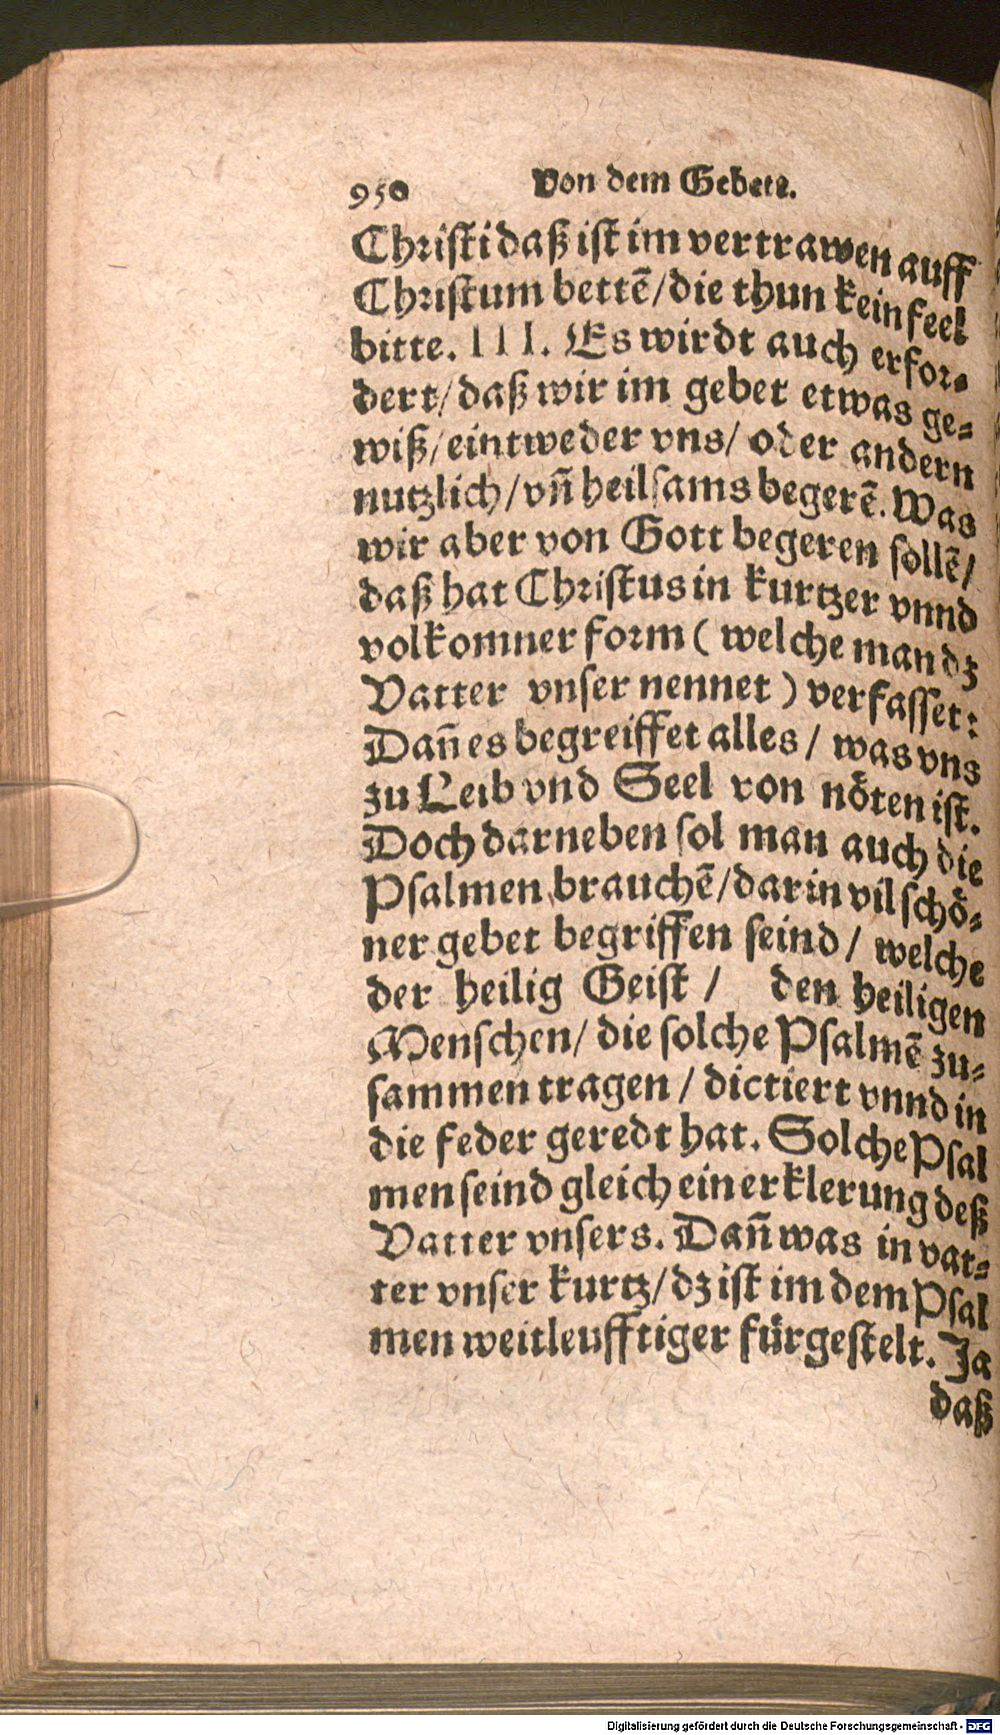 950 Von dem Gebett.
Christi daß ist im vertrawen auff
Christum bettē/die thun kein feel
bitte. III. Es wirdt auch erfor-
dert/daß wir im gebet etwas ge-
wiß/eintweder vns/ oder andern
nutzlich/vñ heilsams begerē. Was
wir aber von Gott begeren sollē/
daß hat Christus in kurtzer vnnd
volkomner form ( welche man dz
Vatter vnser nennet ) verfasset:
Dañ es begreiffet alles / was vns
zu Leib vnd Seel von nöten ist.
Doch darneben sol man auch die
Psalmen brauchē/darin vil schö-
ner gebet begriffen seind / welche
der heilig Geist / den heiligen
Menschen/ die solche Psalmē zu-
sammen tragen / dictiert vnnd in
die feder geredt hat. Solche Psal
men seind gleich ein erklerung deß
Vatter vnsers. Dañ was in vat-
ter vnser kurtz/dz ist im dem Psal
men weitleufftiger fürgestelt. Ja
daß
Digitalisierung gefördert durch die Deutsche Forschungsgemeinschaft - DFG